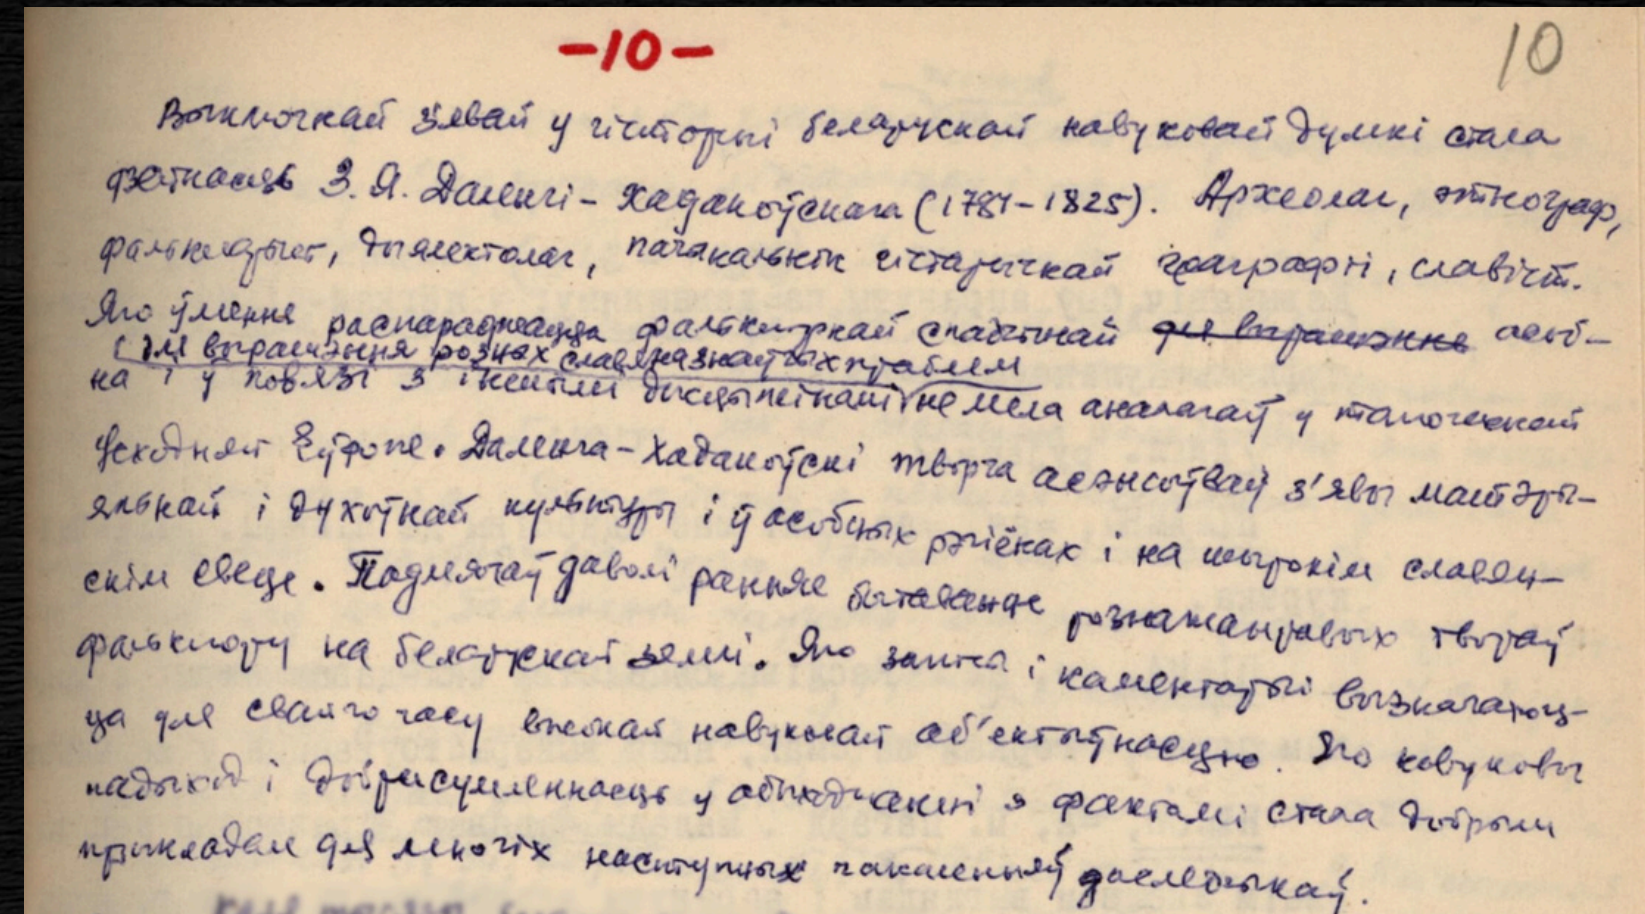 -10-
10
Выключнай з'явай у гісторыі беларускай навуковай думкі стала
дзейнасць З. Я. Даленгі-Хадакоўскага (1784-1825). Археолаг, этнограф,
фалькларыст, дыялектолаг, пачынальнік гістарычнай геаграфіі, славіст.
Яго ўменне распараджацца фальклорнай спадчынай для вырашэння асоб-
і для вырашэння розных славяназнаўчых праблем
на і у повязі з іншымі дысцыплінамі не мела аналагаў у тагочаснай
Усходняй Еўропе. Даленга-Хадакоўскі творча асэнсоўваў з'явы матэры-
яльнай і духоўнай культуры і ў асобных рэгіёнах і на шырокім славян-
скім свеце. Падмячаў даволі ранняе бытаванне рознажанравых твораў
фальклору на беларускай зямлі. Яго запісы і каментарыі вызначаюц-
ца для свайго часу высокай навуковай аб'ектыўнасцю. Яго навуковы
падыход і добрасумленнасць у абыходжанні з фактамі стала добрым
прыкладам для многіх наступных пакаленняў даследчыкаў.